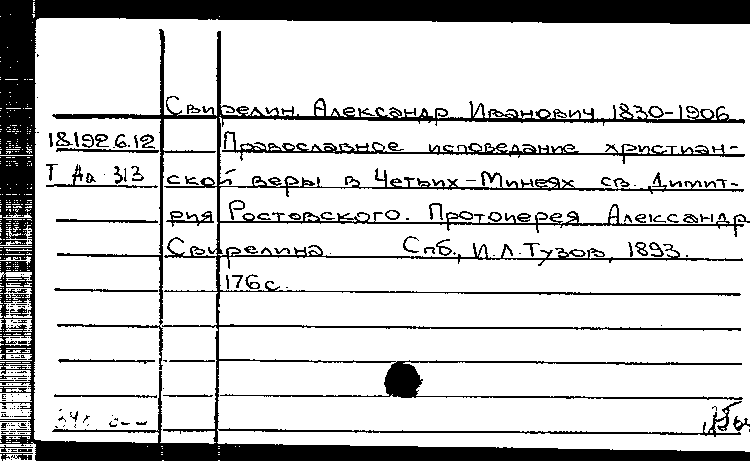 Свирелин, Александр Иванович, 1830-1906
18.192.6.12 Православное исповедание христиан-
ской веры в Четьих-Минеях св. Димит-
рия Ростовского. Протоиерея Александра
Свирелина. Спб., И.Л.Тузов, 1893.
176с.